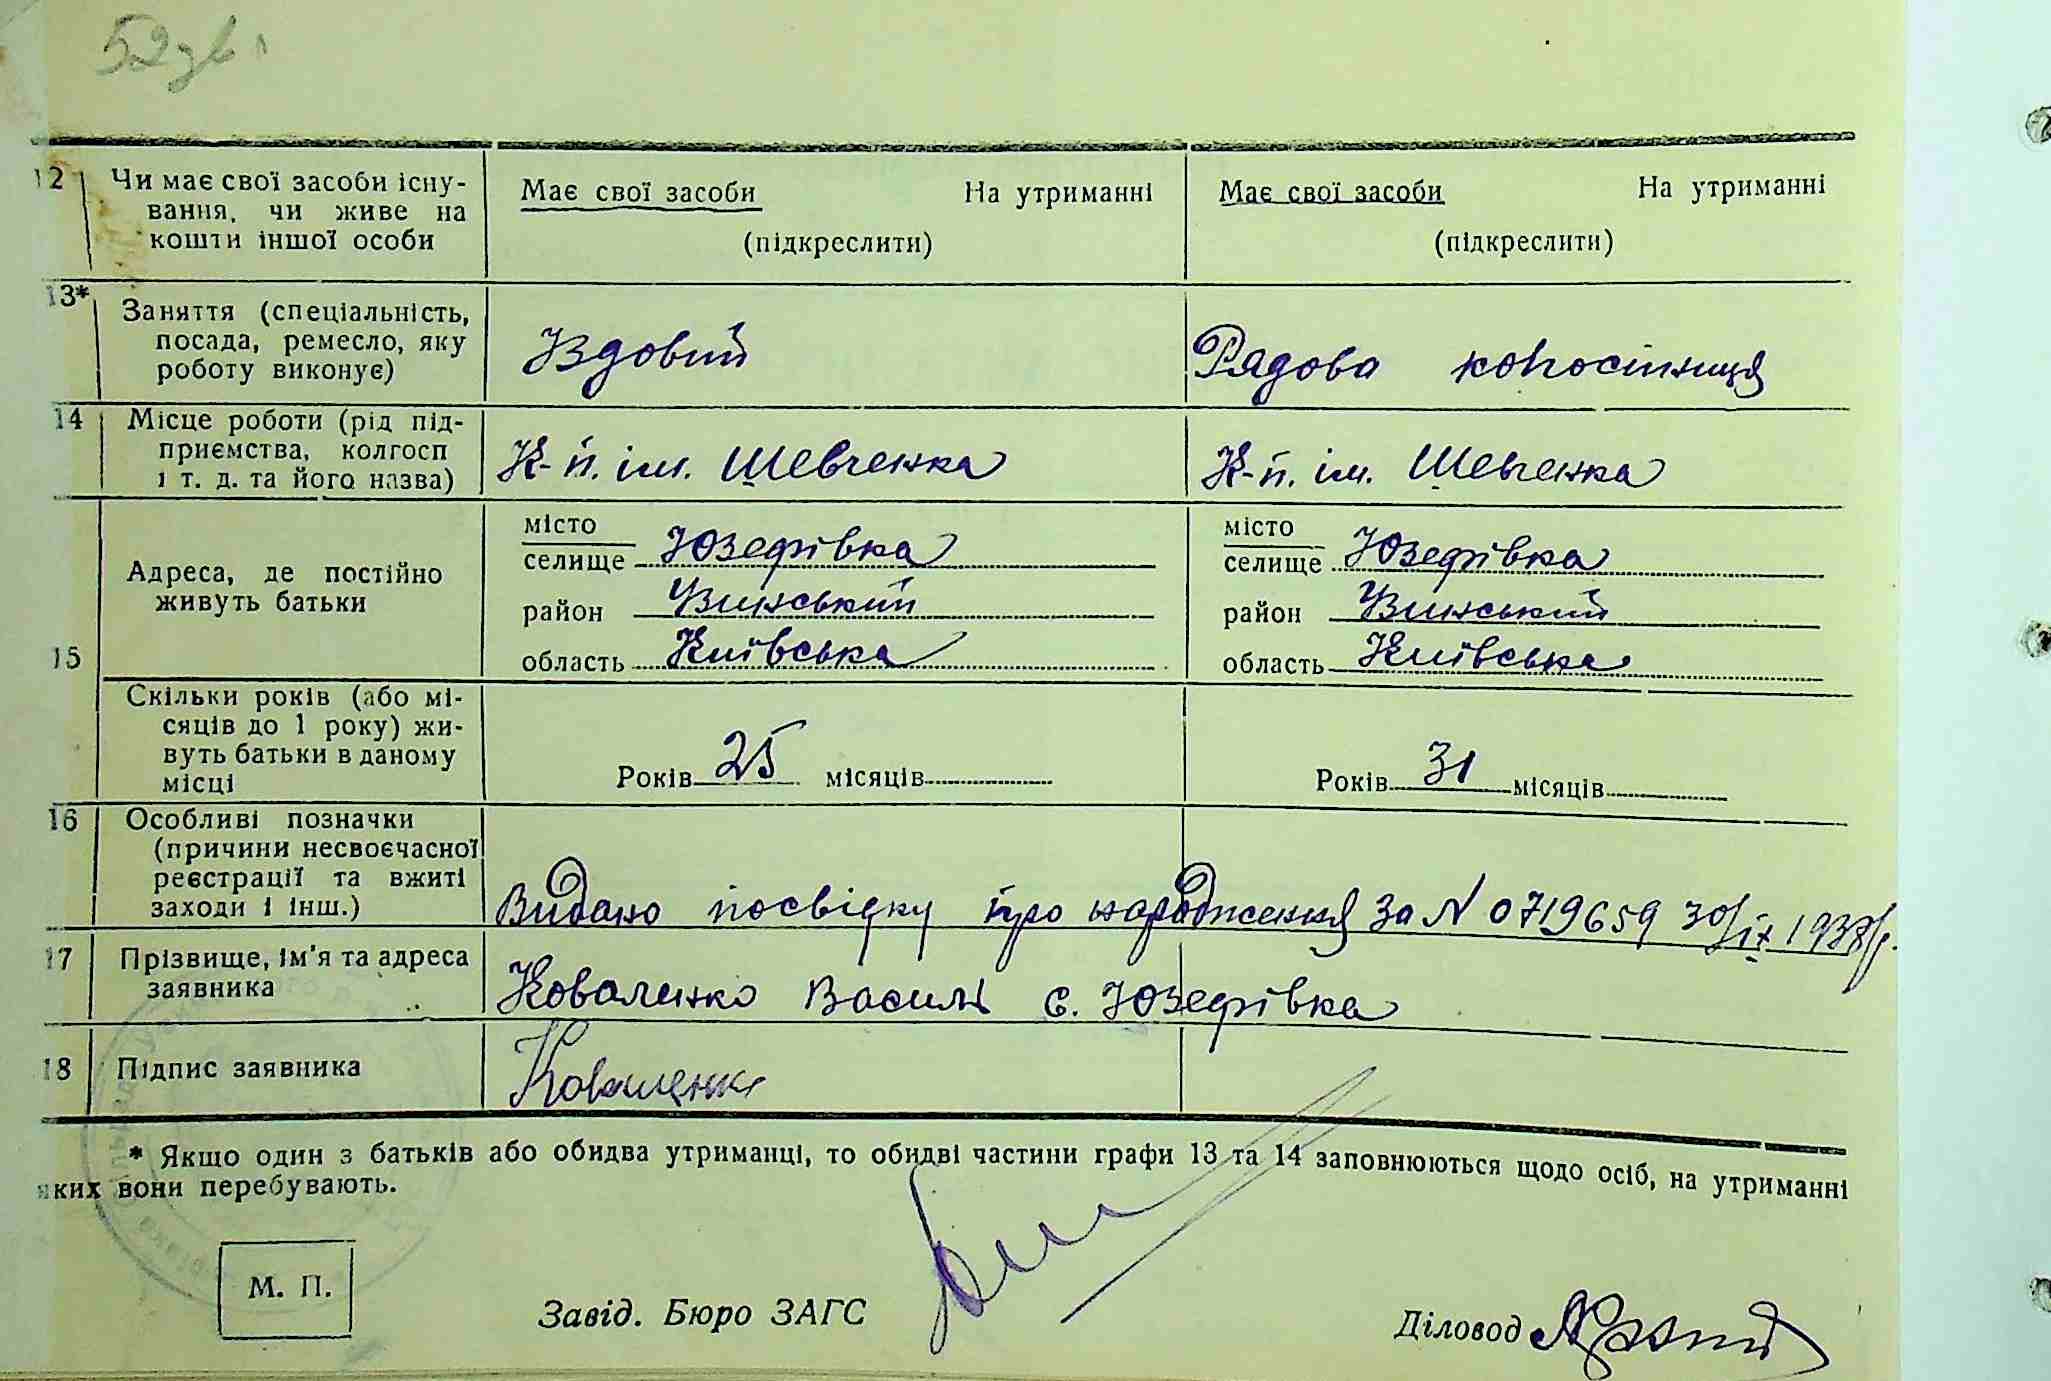 52 зв.
12 Чи має свої засоби існу- Має свої засоби На утриманні Має свої засоби На утриманні
вання, чи живе на
кошти іншої особи (підкреслити) (підкреслити)
13* Заняття (спеціальність,
посада, ремесло, яку Їздовий Рядова
роботу виконує)
14 Місце роботи (рід під-
приємства, колгосп К-п. ім. Шевченка К-п. ім. Шевченка
і т. д. та його назва)
15 Адреса, де постійно
живуть батьки
місто
селище Юзефівка
район
область Київська
місто
селище Юзефівка
район
область Київська
Скільки років (або мі-
сяців до 1 року) жи-
вуть батьки в даному
місці
Років 25 місяців Років 31 місяців
16 Особливі позначки
(причини несвоєчасної
реєстрації та вжиті
заходи і інш.) Видано посвідку про народження за N 0719659 30/IX 1938р.
17 Прізвище, ім'я та адреса
заявника Коваленко Василь с. Юзефівка
18 Підпис заявника Коваленко
* Якщо один з батьків або обидва утриманці, то обидві частини графи 13 та 14 заповнюються щодо осіб, на утриманні
яких вони перебувають.
М. П.
Завід. Бюро ЗАГС
Діловод